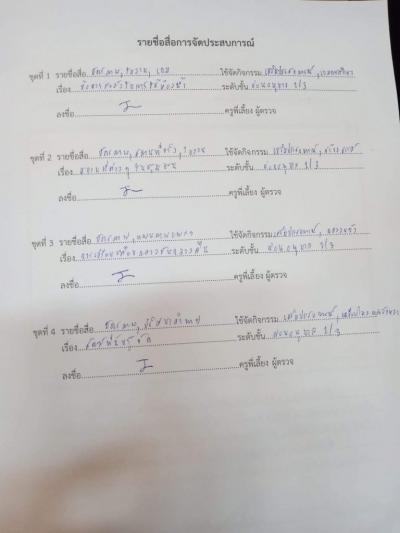 รายชื่อสื่อการจัดประสบการณ์
ชุดที่ 1 รายชื่อสื่อ บัตรภาพ, ใบงาน, เกม ใช้จัดกิจกรรม เสริมประสบการณ์, เกมการศึกษา
เรื่อง ข้อควรระวังในการใช้ห้องน้ำ ระดับชั้น อนุบาล 1/3
ลงชื่อ ครูพี่เลี้ยง ผู้ตรวจ
ชุดที่ 2 รายชื่อสื่อ บัตรภาพ, สถานที่จริง, ใบงาน ใช้จัดกิจกรรม เสริมประสบการณ์, สร้างสรรค์
เรื่อง สถานที่ต่างๆ ในชุมชน ระดับชั้น อนุบาล 1/3
ลงชื่อ ครูพี่เลี้ยง ผู้ตรวจ
ชุดที่ 3 รายชื่อสื่อ บัตรภาพ, แผนภาพเพลง ใช้จัดกิจกรรม เสริมประสบการณ์
เรื่อง การเปรียบเทียบกลางวันกลางคืน ระดับชั้น อนุบาล 1/3
ลงชื่อ ครูพี่เลี้ยง ผู้ตรวจ
ชุดที่ 4 รายชื่อสื่อ บัตรภาพ, ปริศนาคำทาย ใช้จัดกิจกรรม เสริมประสบการณ์
เรื่อง สัตว์ที่หนูรู้จัก ระดับชั้น อนุบาล 1/3
ลงชื่อ ครูพี่เลี้ยง ผู้ตรวจ